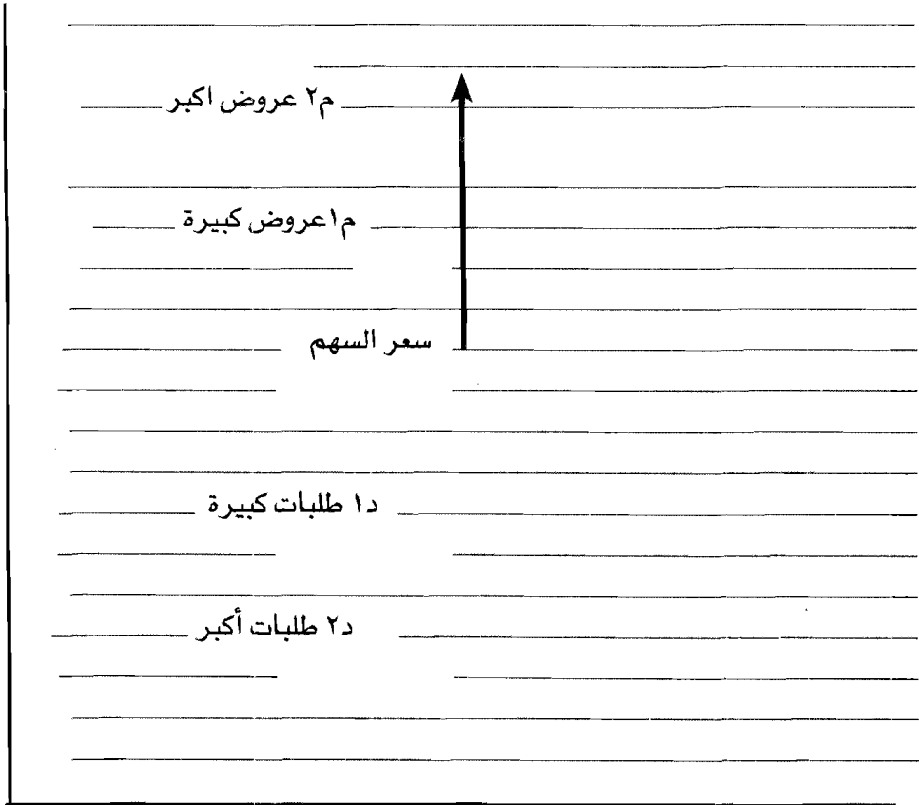 م٢ عروض اكبر
م١ عروض كبيرة
سعر السهم
د١ طلبات كبيرة
د٢ طلبات أكبر